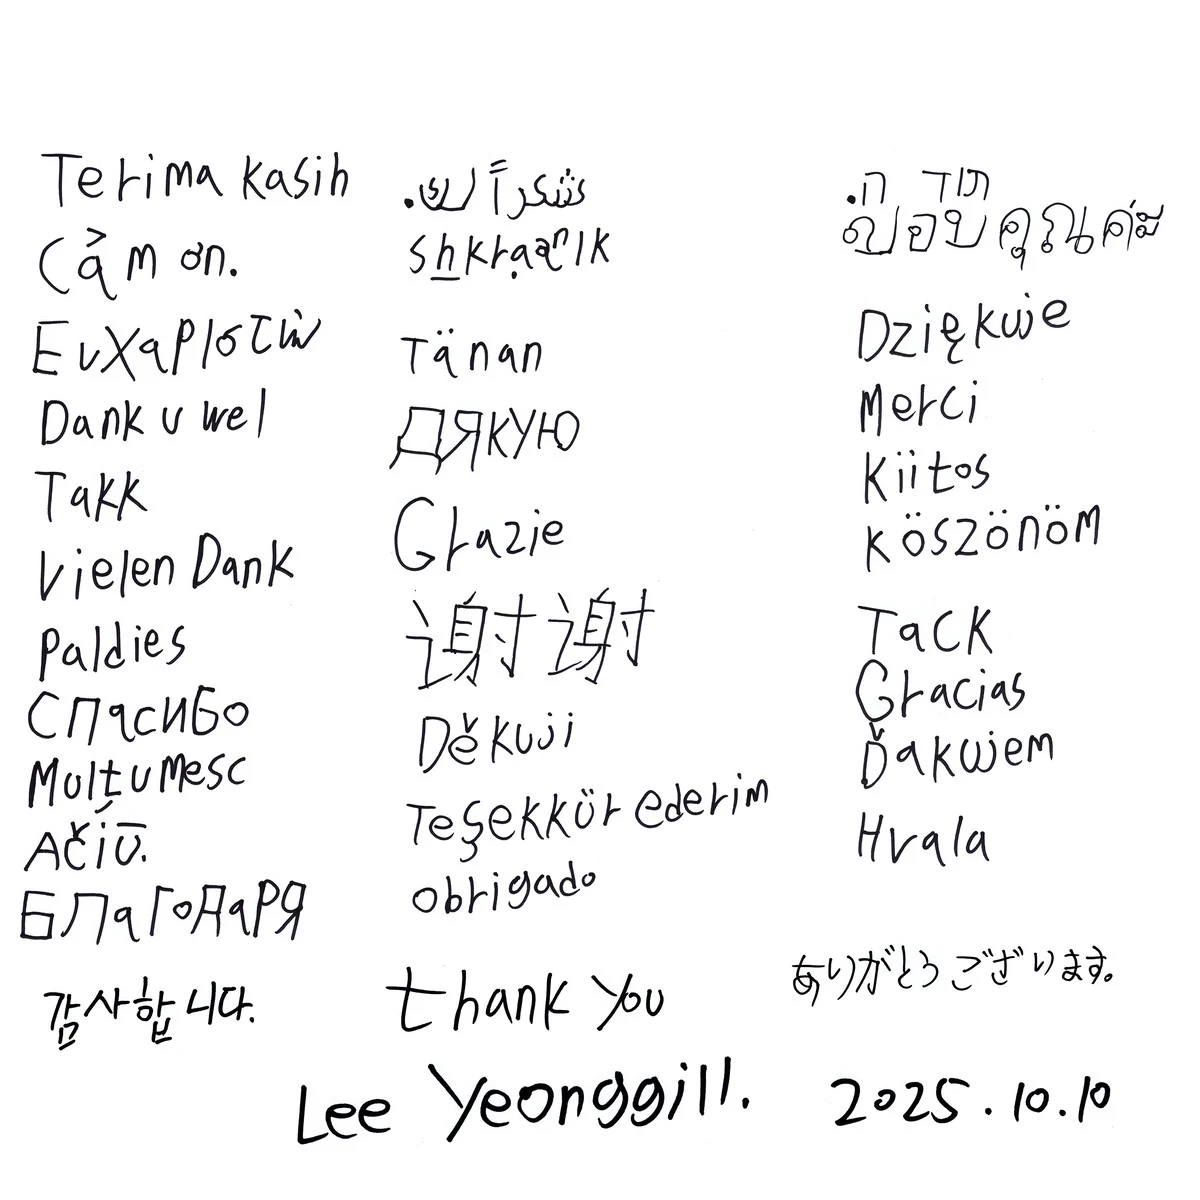 Terima kasih
Cảm ơn.
Ευχαριστώ
Dank u wel
Takk
Vielen Dank
Paldies
Спасибо
Mulţumesc
Ačiū.
БЛаГоДаРЯ
감사합니다.
شكراً لك.
Shkraanlk
Tänan
ДЯКУЮ
Grazie
谢谢
Děkuji
Teşekkür ederim
obrigado
thank you
תודה.
ขอบคุณค่ะ
Dziękuje
Merci
Kiitos
Köszönöm
Tack
Gracias
Ďakujem
Hvala
ありがとうございます。
Lee Yeonggill. 2025.10.10